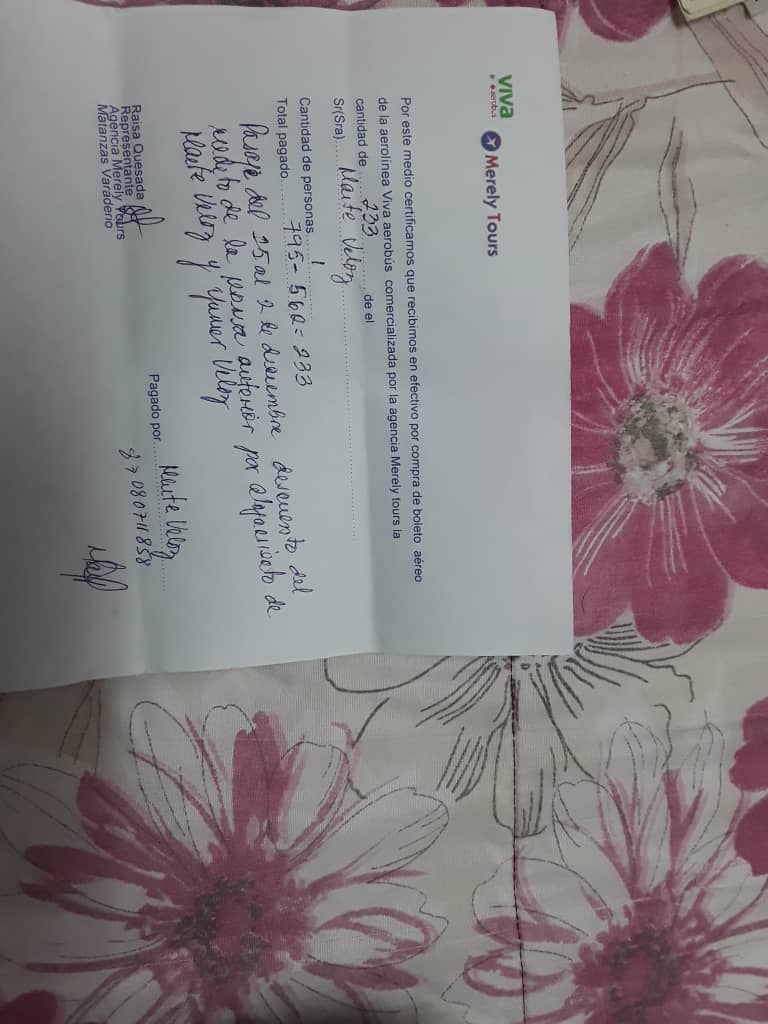 viva
aerobus
Merely Tours
Por este medio certificamos que recibimos en efectivo por compra de boleto aéreo
de la aerolínea Viva aerobús comercializada por la agencia Merely tours la
cantidad de 233 de el
Sr(Sra) Maite Veloz
Cantidad de personas 1
Total pagado 795-562=233
Pasaje del 25 al 2 de diciembre descuento del
de la anterior por de
Maite Veloz y Veloz
Pagado por Maite Veloz
87080711858
Raisa Quesada
Representante
Agencia Merely Tours
Matanzas Varadero